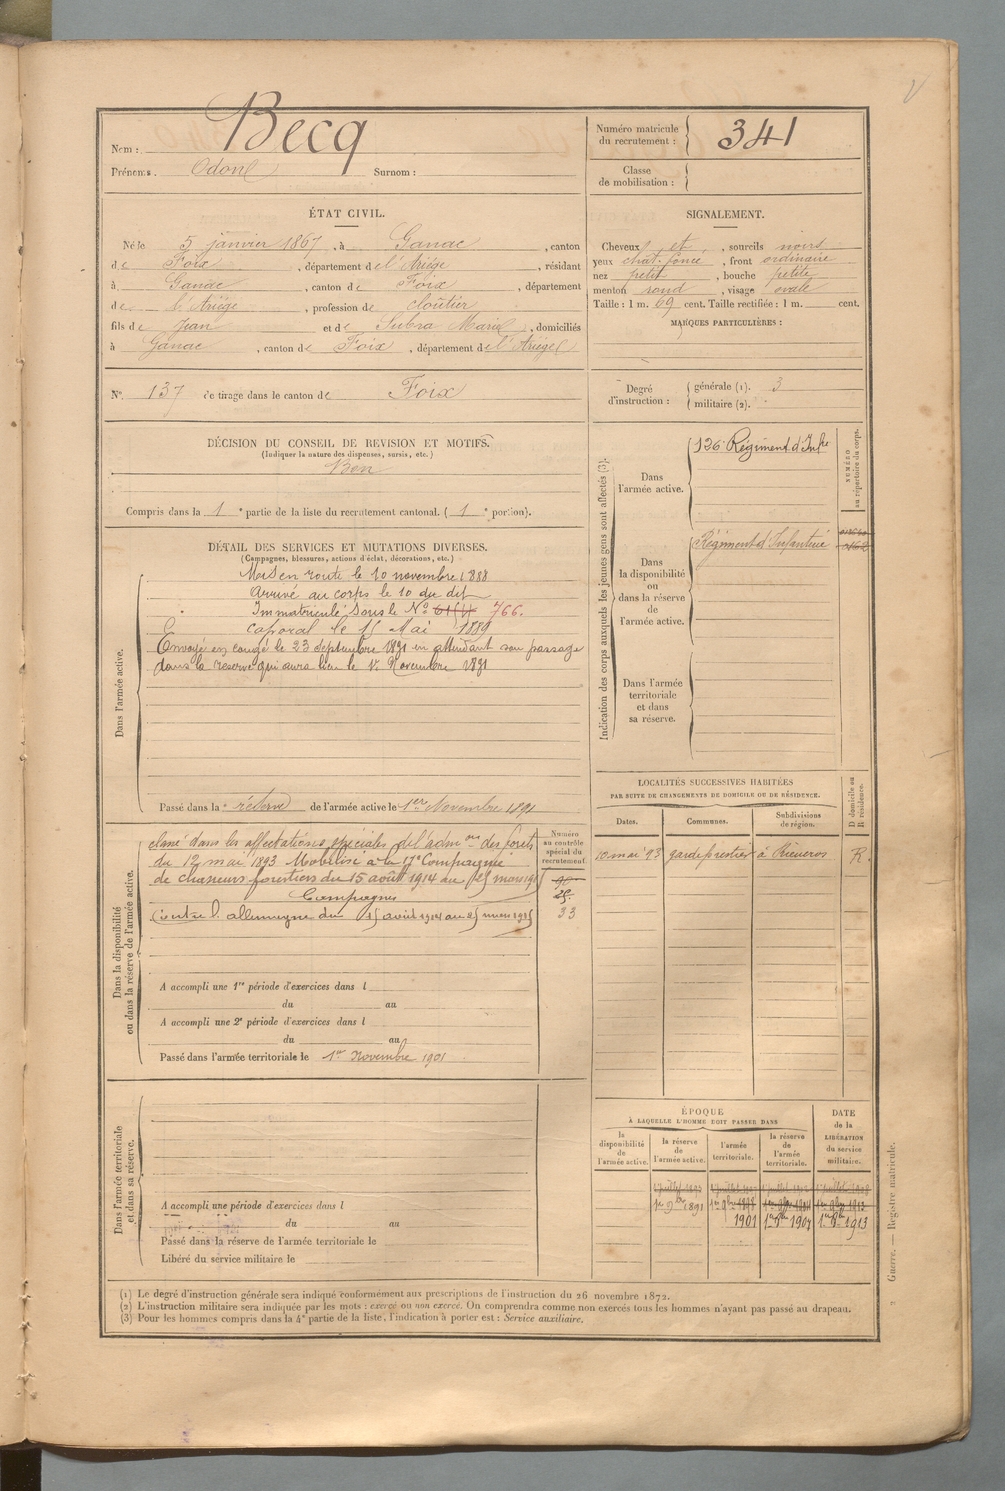 Nom : Becq
Prénoms : Odon Surnom :
Numéro matricule du recrutement : 341
Classe de mobilisation :
ÉTAT CIVIL.
Né le 5 janvier 1867, à Ganac, canton
de Foix, département de l'Ariège, résidant
à Ganac, canton de Foix, département
de l'Ariège, profession de cloutier
fils de Jean et de Subra Marie, domiciliés
à Ganac, canton de Foix, département de l'Ariège
SIGNALEMENT.
Cheveux et, sourcils noirs
yeux chat. foncé, front ordinaire
nez petit, bouche petite
menton rond, visage ovale
Taille : 1 m. 69 cent. Taille rectifiée : 1 m. cent.
MARQUES PARTICULIÈRES :
N° 137 de tirage dans le canton de Foix
Degré d'instruction : générale (1). 3
militaire (2).
DÉCISION DU CONSEIL DE REVISION ET MOTIFS.
(Indiquer la nature des dispenses, sursis, etc.)
Bon
Compris dans la 1e partie de la liste du recrutement cantonal. (1e portion).
DÉTAIL DES SERVICES ET MUTATIONS DIVERSES.
(Campagnes, blessures, actions d'éclat, décorations, etc.)
Dans l'armée active.
Mis en route le 10 novembre 1888
Arrivé au corps le 10 du dit
Immatriculé sous le N° 766.
caporal le 15 Mai 1889
Envoyé en congé le 23 septembre 1891 en attendant son passage
dans la réserve qui aura lieu le 1er Novembre 1891
Passé dans la réserve de l'armée active le 1er Novembre 1891
Indication des corps auxquels les jeunes gens sont affectés (3).
NUMÉRO au répertoire du corps.
Dans l'armée active.
126e Régiment d'Infie
Dans la disponibilité ou dans la réserve de l'armée active.
Régiment d'Infanterie
Dans l'armée territoriale et dans sa réserve.
LOCALITÉS SUCCESSIVES HABITÉES
PAR SUITE DE CHANGEMENTS DE DOMICILE OU DE RÉSIDENCE.
Dates. Communes. Subdivisions de région. D domicile ou R résidence.
10 mai 93 garde forestier à Rieucros R.
Dans la disponibilité ou dans la réserve de l'armée active.
Numéro au contrôle spécial du recrutement
classé dans les affectations spéciales de l'admon des forêts
du 12 mai 1893 Mobilisé à la 17e Compagnie
de chasseurs forestiers du 15 août 1914 au 25 mars 1915
Campagnes
Contre l'allemagne du 15 août 1914 au 25 mars 1915
33
A accompli une 1re période d'exercices dans l
du au
A accompli une 2e période d'exercices dans l
du au
Passé dans l'armée territoriale le 1er Novembre 1901
Dans l'armée territoriale et dans sa réserve.
A accompli une période d'exercices dans l
du au
Passé dans la réserve de l'armée territoriale le
Libéré du service militaire le
ÉPOQUE
À LAQUELLE L'HOMME DOIT PASSER DANS
la disponibilité de l'armée active. la réserve de l'armée active. l'armée territoriale. la réserve de l'armée territoriale. DATE de la LIBÉRATION du service militaire.
1er 9bre 1891 1er 9bre 1898
1901 1er 9bre 1907 1er 9bre 1913
(1) Le degré d'instruction générale sera indiqué conformément aux prescriptions de l'instruction du 26 novembre 1872.
(2) L'instruction militaire sera indiquée par les mots : exercé ou non exercé. On comprendra comme non exercés tous les hommes n'ayant pas passé au drapeau.
(3) Pour les hommes compris dans la 4e partie de la liste, l'indication à porter est : Service auxiliaire.
Guerre. — Registre matricule. 2